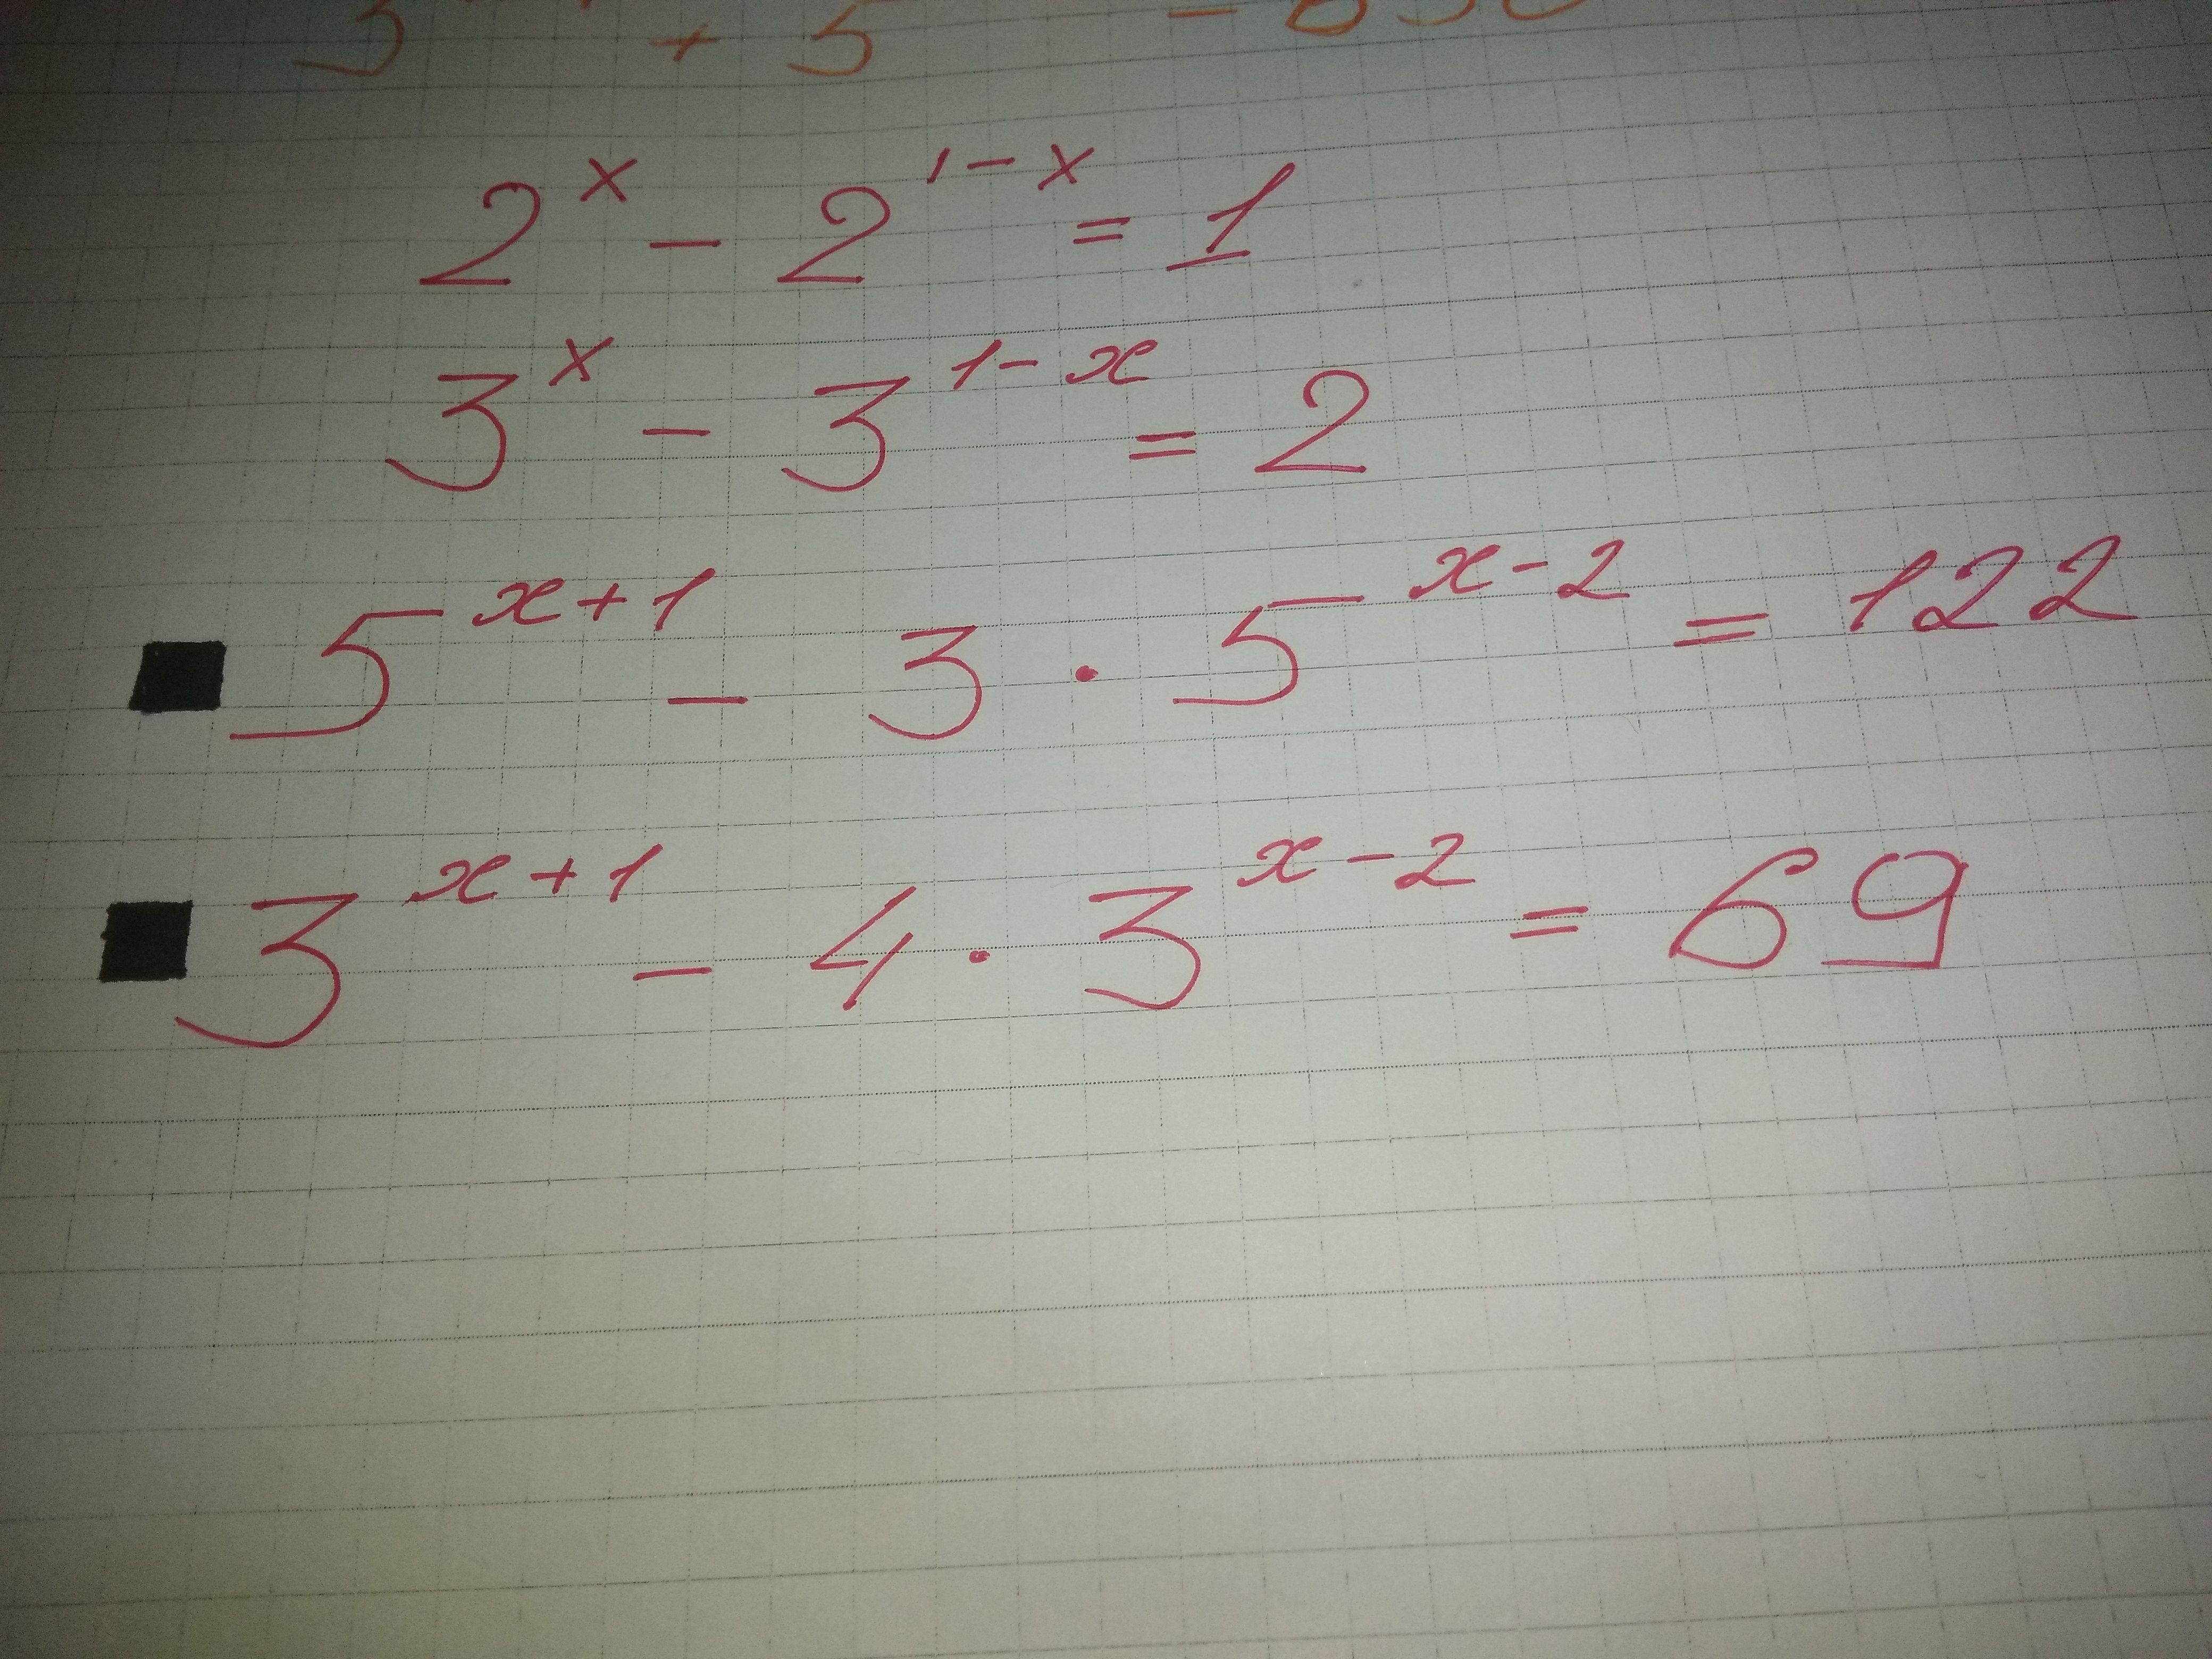 2^x - 2^(1-x) = 1
3^x - 3^(1-x) = 2
5^(x+1) - 3 · 5^(x-2) = 122
3^(x+1) - 4 · 3^(x-2) = 69